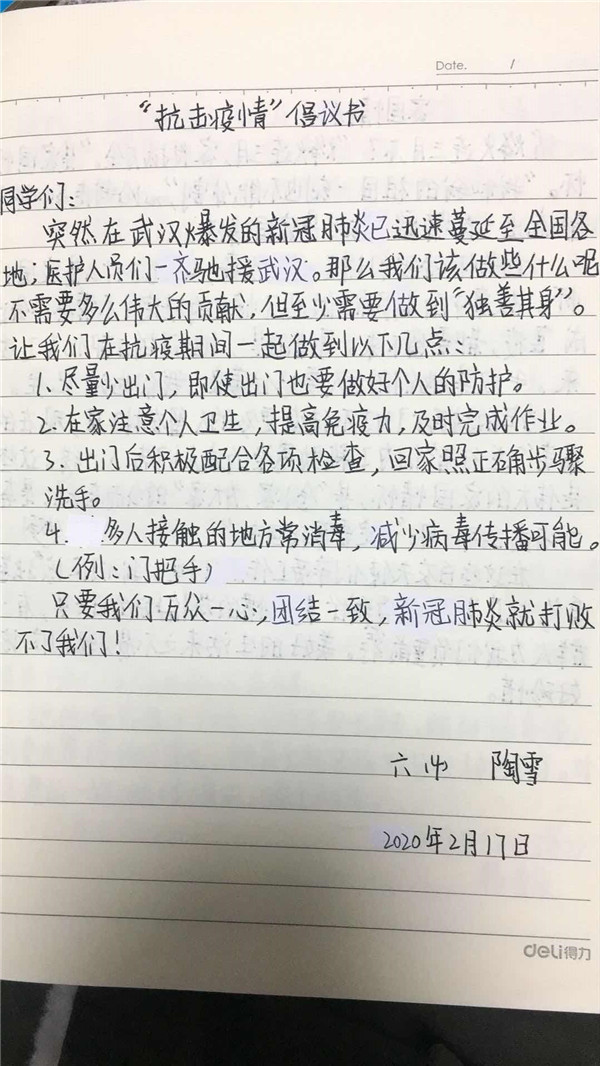 Date. /
“抗击疫情”倡议书
同学们：
突然在武汉爆发的新冠肺炎已迅速蔓延至全国各
地；医护人员们一齐驰援武汉。那么我们该做些什么呢
不需要多么伟大的贡献，但至少需要做到“独善其身”。
让我们在抗疫期间一起做到以下几点：
1. 尽量少出门，即使出门也要做好个人的防护。
2. 在家注意个人卫生，提高免疫力，及时完成作业。
3. 出门后积极配合各项检查，回家照正确步骤
洗手。
4. 多人接触的地方常消毒，减少病毒传播可能。
（例：门把手）
只要我们万众一心，团结一致，新冠肺炎就打败
不了我们！
陶雪
2020年2月17日
deli得力